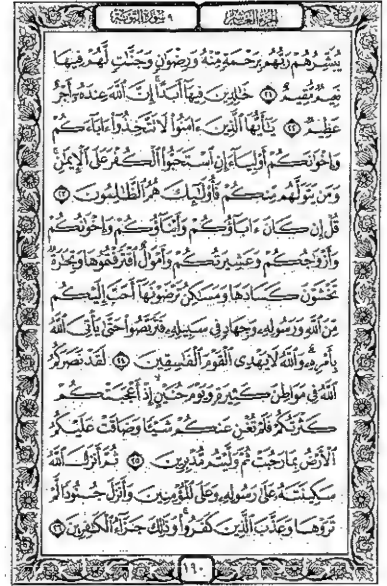 الجزء العاشر ٩ سورة التوبة
يُبَشِّرُهُمْ رَبُّهُم بِرَحْمَةٍ مِّنْهُ وَرِضْوَٰنٍ وَجَنَّٰتٍ لَّهُمْ فِيهَا
نَعِيمٌ مُّقِيمٌ ٢١ خَٰلِدِينَ فِيهَآ أَبَدًا إِنَّ ٱللَّهَ عِندَهُۥٓ أَجْرٌ
عَظِيمٌ ٢٢ يَٰٓأَيُّهَا ٱلَّذِينَ ءَامَنُوا۟ لَا تَتَّخِذُوٓا۟ ءَابَآءَكُمْ
وَإِخْوَٰنَكُمْ أَوْلِيَآءَ إِنِ ٱسْتَحَبُّوا۟ ٱلْكُفْرَ عَلَى ٱلْإِيمَٰنِ
وَمَن يَتَوَلَّهُم مِّنكُمْ فَأُو۟لَٰٓئِكَ هُمُ ٱلظَّٰلِمُونَ ٢٣
قُلْ إِن كَانَ ءَابَآؤُكُمْ وَأَبْنَآؤُكُمْ وَإِخْوَٰنُكُمْ
وَأَزْوَٰجُكُمْ وَعَشِيرَتُكُمْ وَأَمْوَٰلٌ ٱقْتَرَفْتُمُوهَا وَتِجَٰرَةٌ
تَخْشَوْنَ كَسَادَهَا وَمَسَٰكِنُ تَرْضَوْنَهَآ أَحَبَّ إِلَيْكُم
مِّنَ ٱللَّهِ وَرَسُولِهِۦ وَجِهَادٍ فِى سَبِيلِهِۦ فَتَرَبَّصُوا۟ حَتَّىٰ يَأْتِىَ ٱللَّهُ
بِأَمْرِهِۦ وَٱللَّهُ لَا يَهْدِى ٱلْقَوْمَ ٱلْفَٰسِقِينَ ٢٤ لَقَدْ نَصَرَكُمُ
ٱللَّهُ فِى مَوَاطِنَ كَثِيرَةٍ وَيَوْمَ حُنَيْنٍ إِذْ أَعْجَبَتْكُمْ
كَثْرَتُكُمْ فَلَمْ تُغْنِ عَنكُمْ شَيْـًٔا وَضَاقَتْ عَلَيْكُمُ
ٱلْأَرْضُ بِمَا رَحُبَتْ ثُمَّ وَلَّيْتُم مُّدْبِرِينَ ٢٥ ثُمَّ أَنزَلَ ٱللَّهُ
سَكِينَتَهُۥ عَلَىٰ رَسُولِهِۦ وَعَلَى ٱلْمُؤْمِنِينَ وَأَنزَلَ جُنُودًا لَّمْ
تَرَوْهَا وَعَذَّبَ ٱلَّذِينَ كَفَرُوا۟ وَذَٰلِكَ جَزَآءُ ٱلْكَٰفِرِينَ ٢٦
١٩٠